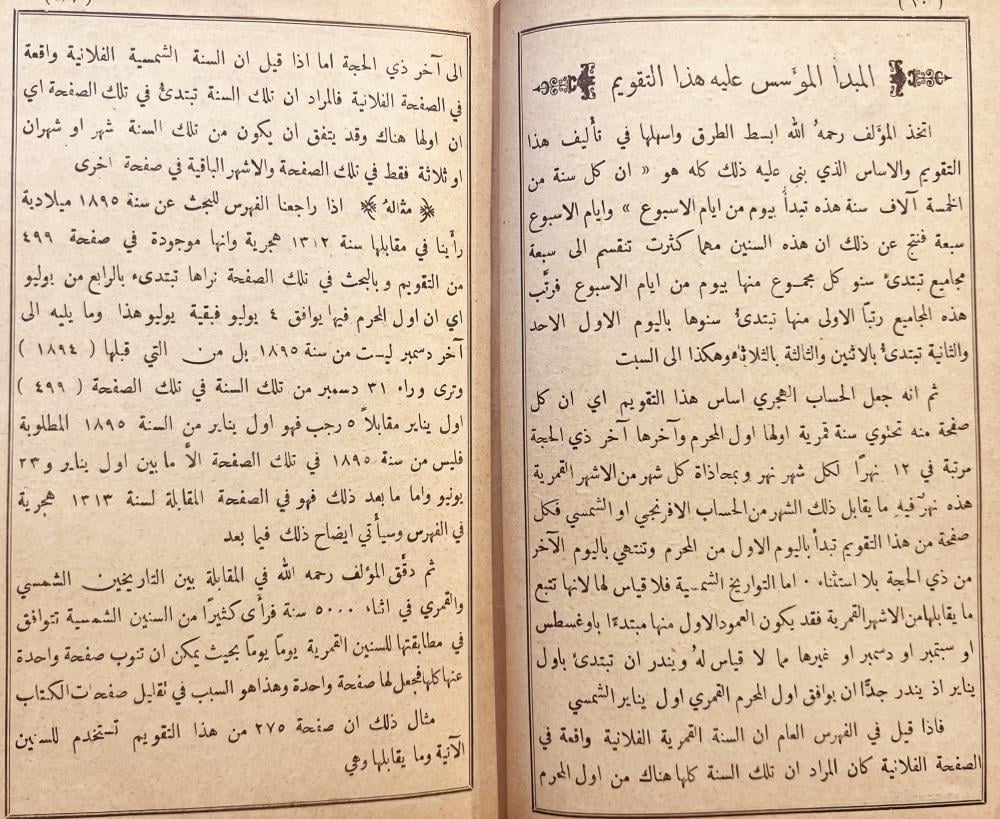 المبدأ المؤسس عليه هذا التقويم
اتخذ المؤلف رحمهُ الله ابسط الطرق واسهلها في تأليف هذا
التقويم والاساس الذي بنى عليه ذلك كله هو « ان كل سنة من
الخمسة آلاف سنة هذه تبدأ بيوم من ايام الاسبوع » وايام الاسبوع
سبعة فنتج عن ذلك ان هذه السنين مهما كثرت تنقسم الى سبعة
مجاميع تبتدئ سنو كل مجموع منها بيوم من ايام الاسبوع فرتَّب
هذه المجاميع رتبًا الاولى منها تبتدئُ سنوها باليوم الاول الاحد
والثانية تبتدئ بالاثنين والثالثة بالثلاثاء وهكذا الى السبت
ثم انه جعل الحساب الهجري اساس هذا التقويم اي ان كل
صفحة منه تحتوي سنة قمرية اولها اول المحرم وآخرها آخر ذي الحجة
مرتبة في ١٢ نهرًا لكل شهر نهر وبمحاذاة كل شهر من الاشهر القمرية
هذه نهرٌ فيه ما يقابل ذلك الشهر من الحساب الافرنجي او الشمسي فكل
صفحة من هذا التقويم تبدأ باليوم الاول من المحرم وتنتهي باليوم الآخر
من ذي الحجة بلا استثناء . اما التواريخ الشمسية فلا قياس لها لانها تتبع
ما يقابلها من الاشهر القمرية فقد يكون العمود الاول منها مبتدءًا باوغسطس
او سبتمبر او دسمبر او غيرها مما لا قياس لهُ ويندر ان تبتدئ باول
يناير اذ يندر جدًّا ان يوافق اول المحرم القمري اول يناير الشمسي
فاذا قيل في الفهرس العام ان السنة القمرية الفلانية واقعة في
الصفحة الفلانية كان المراد ان تلك السنة كلها هناك من اول المحرم
الى آخر ذي الحجة اما اذا قيل ان السنة الشمسية الفلانية واقعة
في الصفحة الفلانية فالمراد ان تلك السنة تبتدئُ في تلك الصفحة اي
ان اولها هناك وقد يتفق ان يكون من تلك السنة شهر او شهران
او ثلاثة فقط في تلك الصفحة والاشهر الباقية في صفحة اخرى
مثالهُ اذا راجعنا الفهرس للبحث عن سنة ١٨٩٥ ميلادية
رأينا في مقابلها سنة ١٣١٢ هجرية وانها موجودة في صفحة ٤٩٩
من التقويم وبالبحث في تلك الصفحة نراها تبتدىء بالرابع من يوليو
اي ان اول المحرم فيها يوافق ٤ يوليو فبقية يوليو هذا وما يليه الى
آخر دسمبر ليست من سنة ١٨٩٥ بل من التي قبلها ( ١٨٩٤ )
وترى وراء ٣١ دسمبر من تلك السنة في تلك الصفحة ( ٤٩٩ )
اول يناير مقابلاً ٥ رجب فهو اول يناير من السنة ١٨٩٥ المطلوبة
فليس من سنة ١٨٩٥ في تلك الصفحة الاَّ ما بين اول يناير و ٢٣
يونيو واما ما بعد ذلك فهو في الصفحة المقابلة لسنة ١٣١٣ هجرية
في الفهرس وسيأتي ايضاح ذلك فيما بعد
ثم دقَّق المؤلف رحمه الله في المقابلة بين التاريخين الشمسي
والقمري في اثناء ٥٠٠٠ سنة فرأى كثيرًا من السنين الشمسية تتوافق
في مطابقتها للسنين القمرية يومًا يومًا بحيث يمكن ان تنوب صفحة واحدة
عنها كلها فجعل لها صفحة واحدة وهذا هو السبب في تقليل صفحات الكتاب
مثال ذلك ان صفحة ٢٧٥ من هذا التقويم تستخدم للسنين
الآتية وما يقابلها وهي